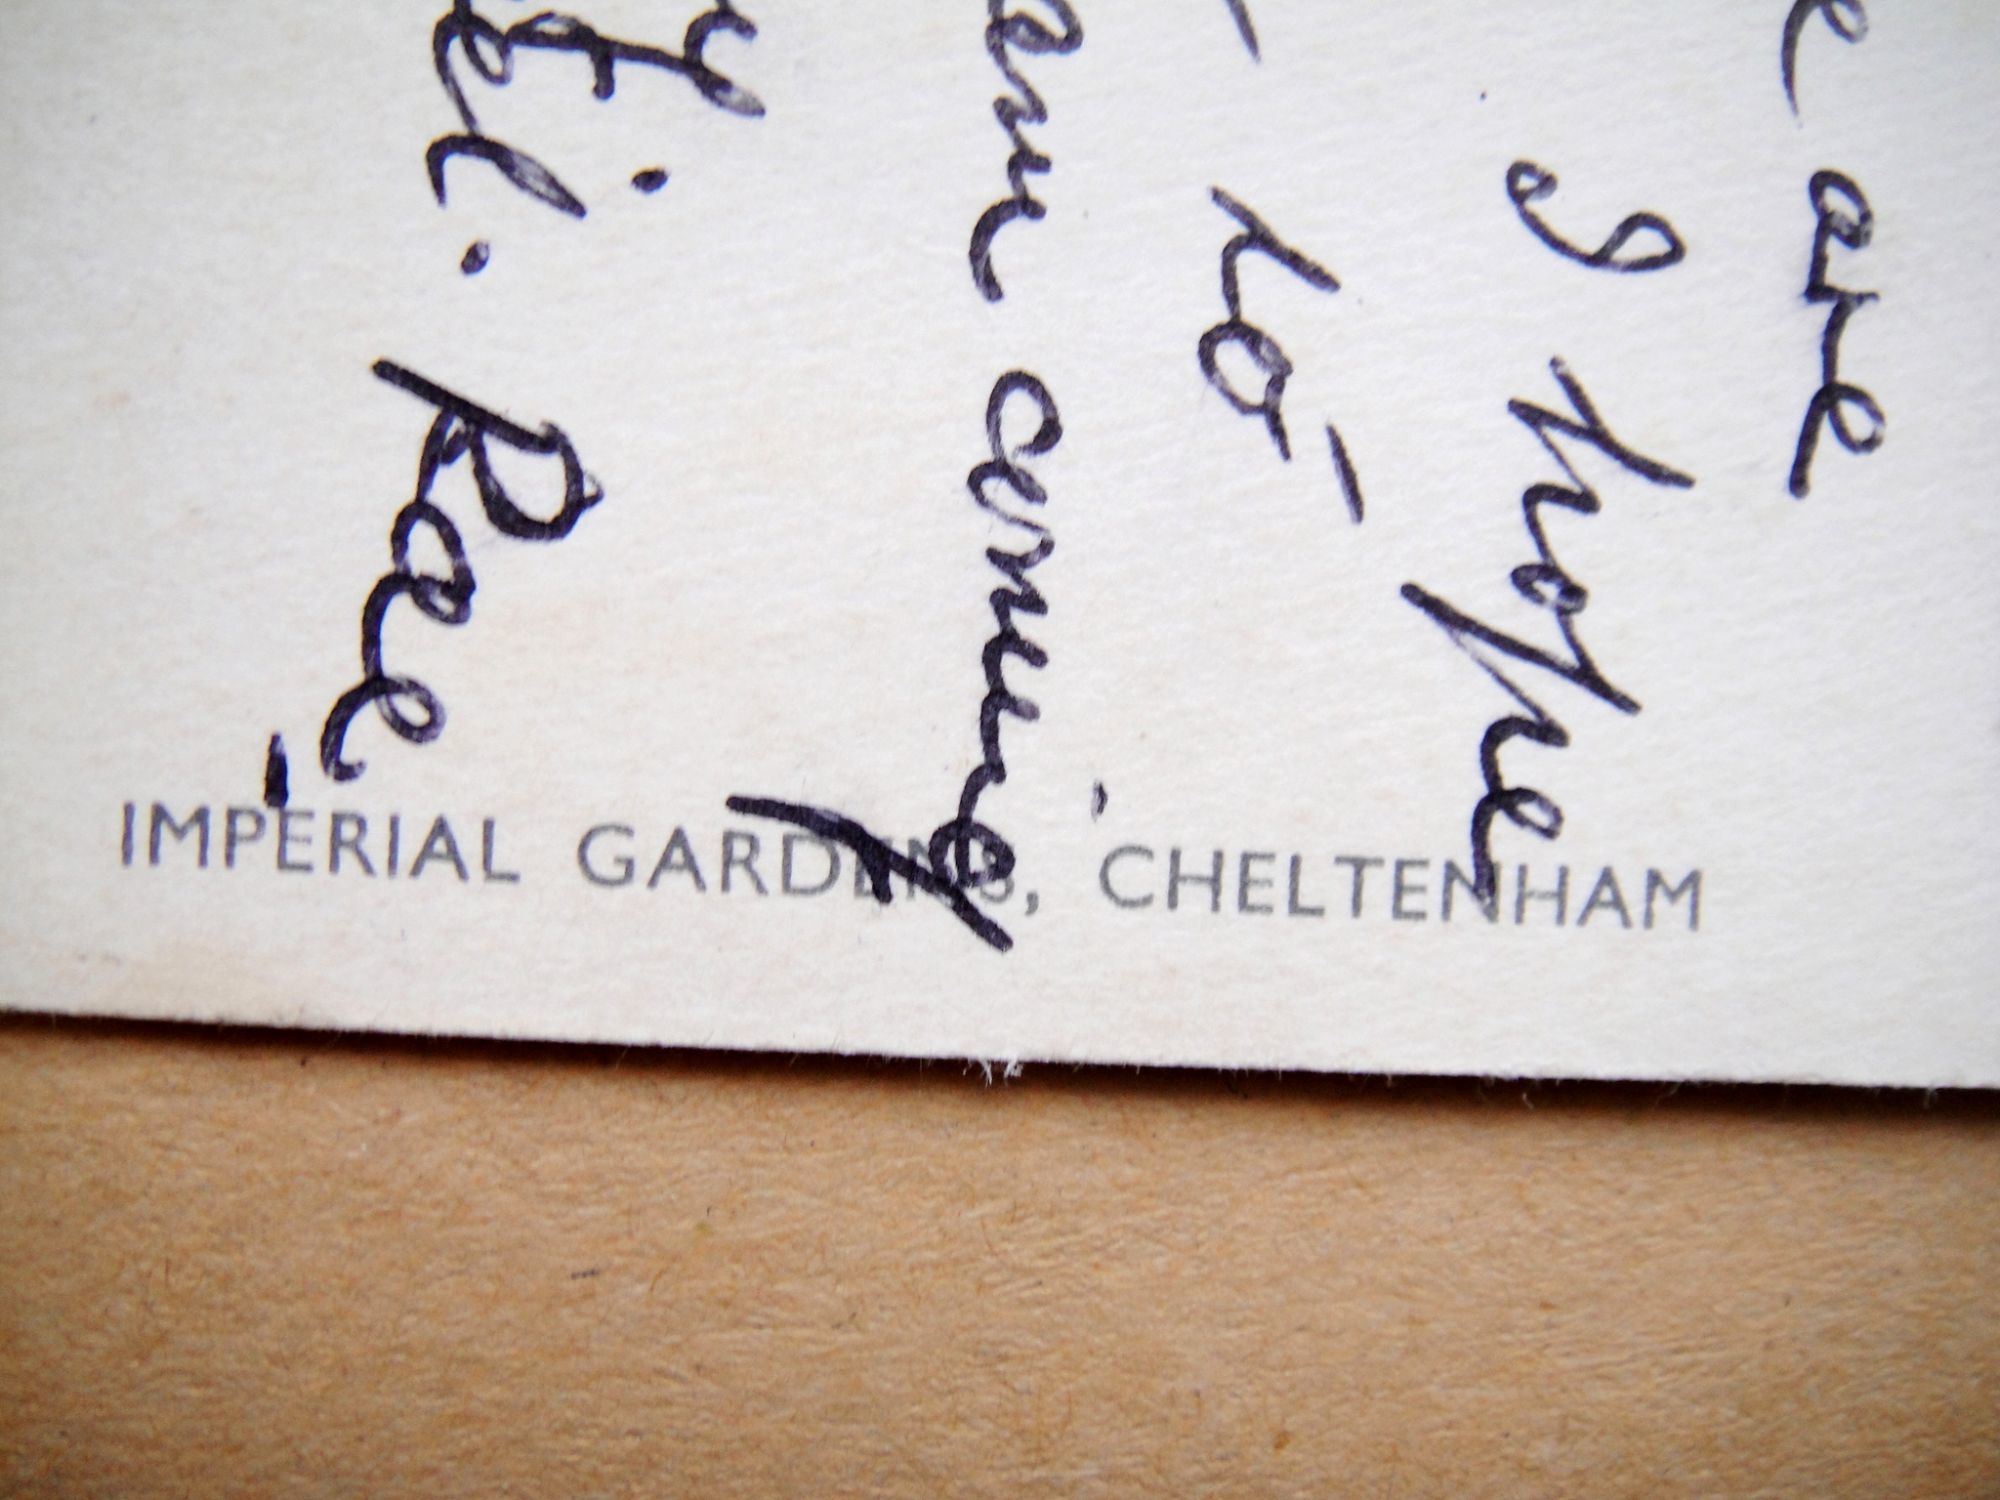 e are
I hope
to -
am coming
Rae
IMPERIAL GARDENS, CHELTENHAM